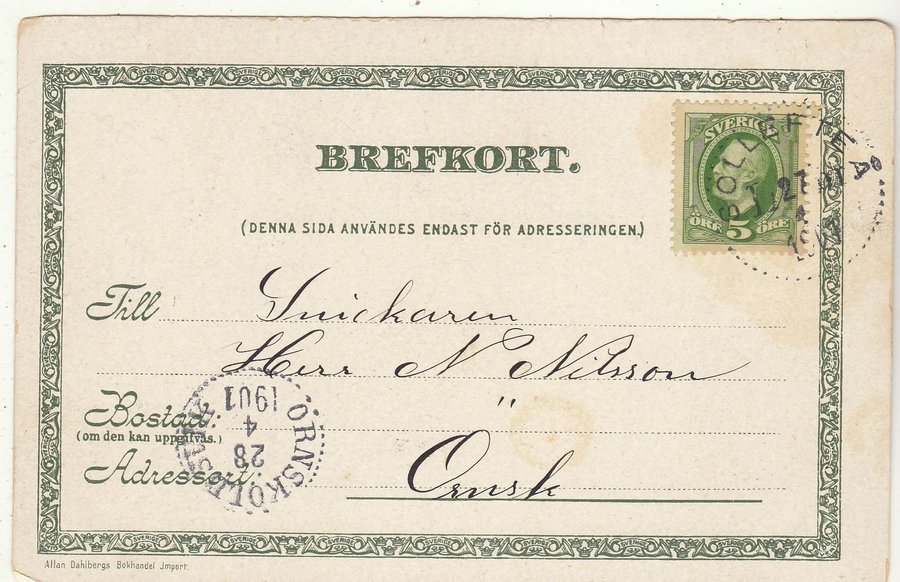 BREFKORT.
(DENNA SIDA ANVÄNDES ENDAST FÖR ADRESSERINGEN.)
SVERIGE
ÖRE 5 ÖRE
SOLLEFTEÅ
27
4
1901
Till Snickaren
Herr N Nilsson
Bostad:
"
(om den kan uppgifvas.)
Adressort: Örnsk
ÖRNSKÖLDSVIK
28
4
1901
Allan Dahlbergs Bokhandel Import.